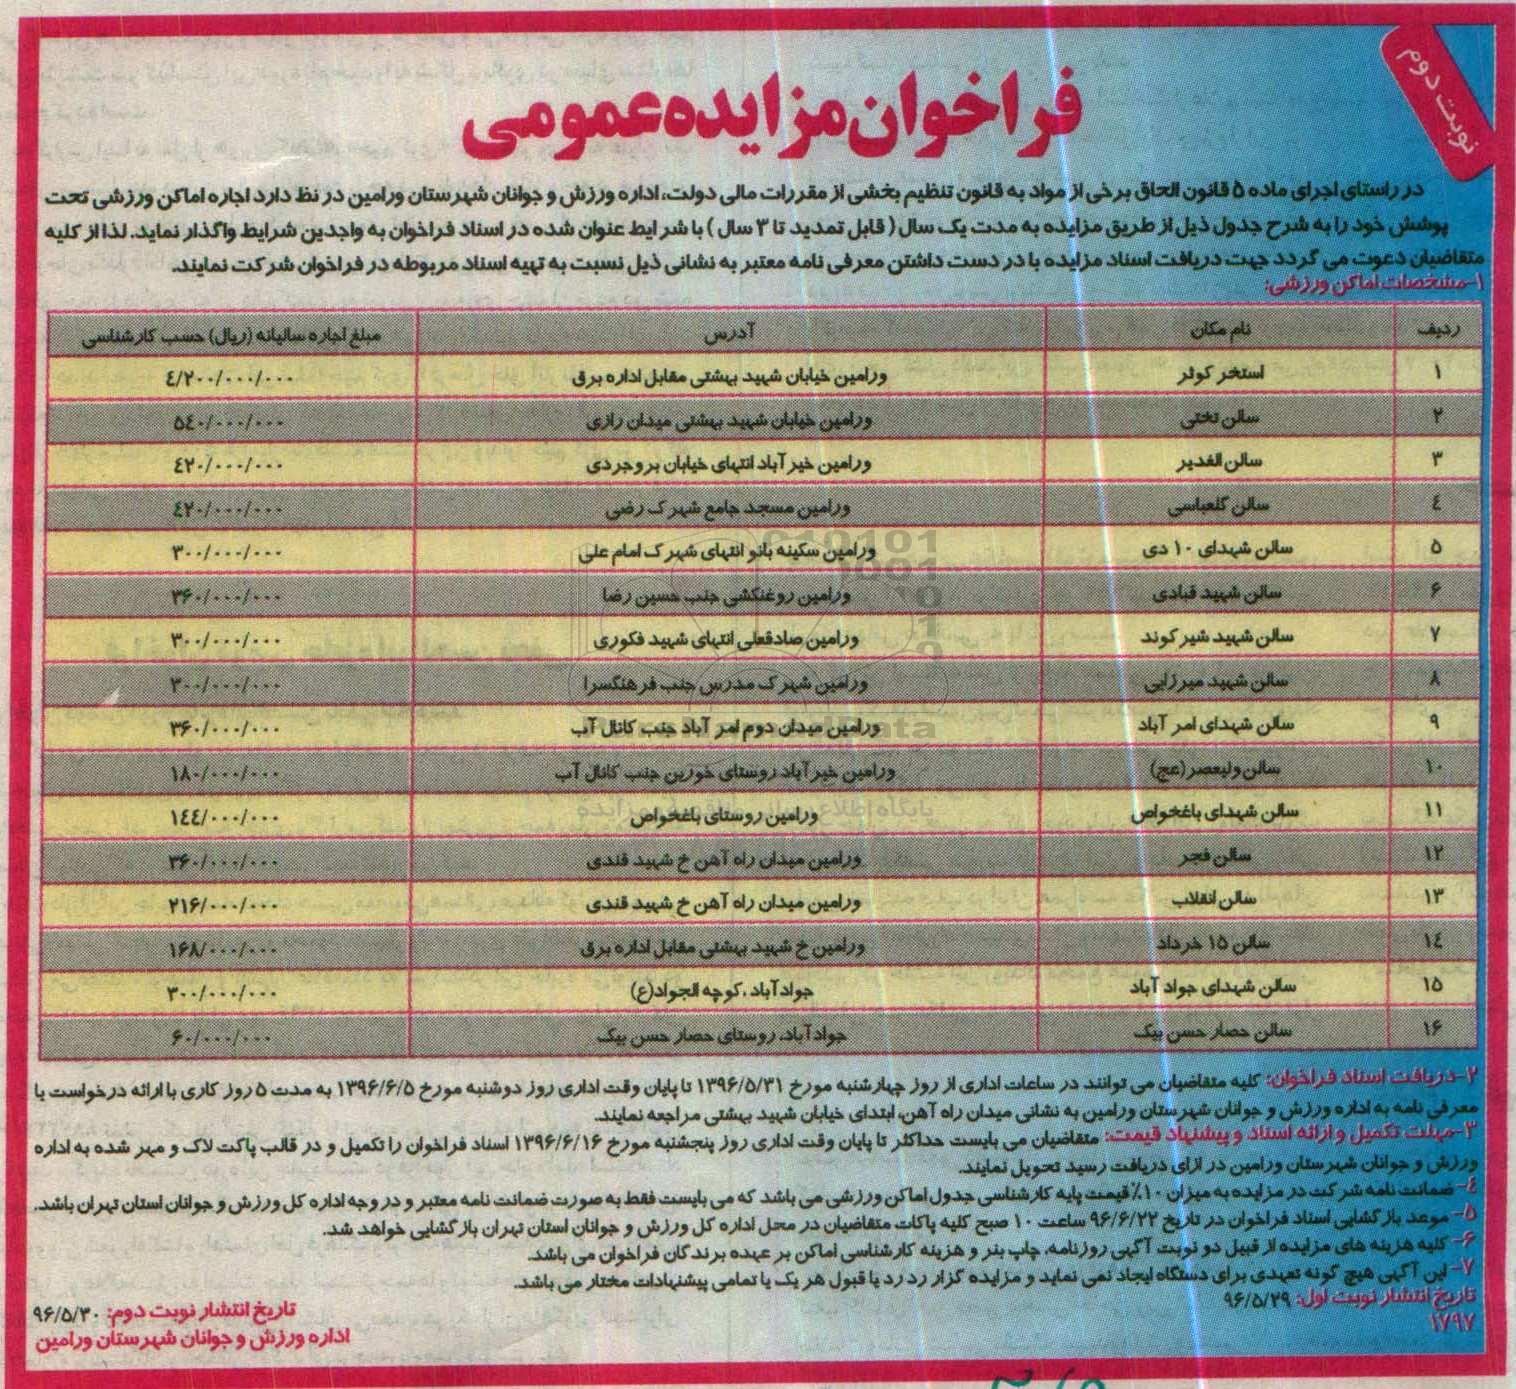 نوبت دوم
فراخوان مزایده عمومی
در راستای اجرای ماده ۵ قانون الحاق برخی از مواد به قانون تنظیم بخشی از مقررات مالی دولت، اداره ورزش و جوانان شهرستان ورامین در نظ دارد اجاره اماکن ورزشی تحت
پوشش خود را به شرح جدول ذیل از طریق مزایده به مدت یک سال ( قابل تمدید تا ۳ سال ) با شرایط عنوان شده در اسناد فراخوان به واجدین شرایط واگذار نماید. لذا از کلیه
متقاضیان دعوت می گردد جهت دریافت اسناد مزایده با در دست داشتن معرفی نامه معتبر به نشانی ذیل نسبت به تهیه اسناد مربوطه در فراخوان شرکت نمایند.
۱-مشخصات اماکن ورزشی:
ردیف نام مکان آدرس مبلغ اجاره سالیانه (ریال) حسب کارشناسی
۱ استخر کوثر ورامین خیابان شهید بهشتی مقابل اداره برق ٤/۲۰۰/۰۰۰/۰۰۰
۲ سالن تختی ورامین خیابان شهید بهشتی میدان رازی ۵٤۰/۰۰۰/۰۰۰
۳ سالن الغدیر ورامین خیر آباد انتهای خیابان بروجردی ٤۲۰/۰۰۰/۰۰۰
٤ سالن گلعباسی ورامین مسجد جامع شهرک رضی ٤۲۰/۰۰۰/۰۰۰
۵ سالن شهدای ۱۰ دی ورامین سکینه بانو انتهای شهرک امام علی ۳۰۰/۰۰۰/۰۰۰
۶ سالن شهید قبادی ورامین روغنکشی جنب حسین رضا ۳۶۰/۰۰۰/۰۰۰
۷ سالن شهید شیرکوند ورامین صادقعلی انتهای شهید فکوری ۳۰۰/۰۰۰/۰۰۰
۸ سالن شهید میرزایی ورامین شهرک مدرس جنب فرهنگسرا ۳۰۰/۰۰۰/۰۰۰
۹ سالن شهدای امر آباد ورامین میدان دوم امر آباد جنب کانال آب ۳۶۰/۰۰۰/۰۰۰
۱۰ سالن ولیعصر (عج) ورامین خیرآباد روستای خورین جنب کانال آب ۱۸۰/۰۰۰/۰۰۰
۱۱ سالن شهدای باغخواص ورامین روستای باغخواص ۱٤٤/۰۰۰/۰۰۰
۱۲ سالن فجر ورامین میدان راه آهن خ شهید قندی ۳۶۰/۰۰۰/۰۰۰
۱۳ سالن انقلاب ورامین میدان راه آهن خ شهید قندی ۲۱۶/۰۰۰/۰۰۰
۱٤ سالن ۱۵ خرداد ورامین خ شهید بهشتی مقابل اداره برق ۱۶۸/۰۰۰/۰۰۰
۱۵ سالن شهدای جواد آباد جوادآباد ،کوچه الجواد(ع) ۳۰۰/۰۰۰/۰۰۰
۱۶ سالن حصار حسن بیک جوادآباد، روستای حصار حسن بیک ۶۰/۰۰۰/۰۰۰
۲-دریافت اسناد فراخوان: کلیه متقاضیان می توانند در ساعات اداری از روز چهارشنبه مورخ ۱۳۹۶/۵/۳۱ تا پایان وقت اداری روز دوشنبه مورخ ۱۳۹۶/۶/۵ به مدت ۵ روز کاری با ارائه درخواست یا
معرفی نامه به اداره ورزش و جوانان شهرستان ورامین به نشانی میدان راه آهن، ابتدای خیابان شهید بهشتی مراجعه نمایند.
۳-مهلت تکمیل و ارائه اسناد و پیشنهاد قیمت: متقاضیان می بایست حداکثر تا پایان وقت اداری روز پنجشنبه مورخ ۱۳۹۶/۶/۱۶ اسناد فراخوان را تکمیل و در قالب پاکت لاک و مهر شده به اداره
ورزش و جوانان شهرستان ورامین در ازای دریافت رسید تحویل نمایند.
٤- ضمانت نامه شرکت در مزایده به میزان ۱۰٪ قیمت پایه کارشناسی جدول اماکن ورزشی می باشد که می بایست فقط به صورت ضمانت نامه معتبر و در وجه اداره کل ورزش و جوانان استان تهران باشد.
۵- موعد بازگشایی اسناد فراخوان در تاریخ ۹۶/۶/۲۲ ساعت ۱۰ صبح کلیه پاکات متقاضیان در محل اداره کل ورزش و جوانان استان تهران بازگشایی خواهد شد.
۶- کلیه هزینه های مزایده از قبیل دو نوبت آگهی روزنامه، چاپ بنر و هزینه کارشناسی اماکن بر عهده برندگان فراخوان می باشد.
۷- این آگهی هیچ گونه تعهدی برای دستگاه ایجاد نمی نماید و مزایده گزار رد یا قبول هر یک یا تمامی پیشنهادات مختار می باشد.
تاریخ انتشار نوبت اول: ۹۶/۵/۲۹
تاریخ انتشار نوبت دوم: ۹۶/۵/۳۰
۱۷۹۷
اداره ورزش و جوانان شهرستان ورامین